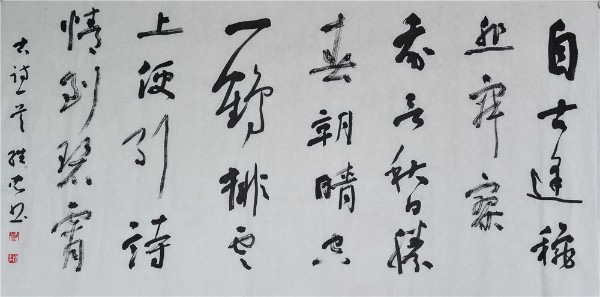 自古逢秋
悲寂寥
我言秋日勝
春朝晴空
一鶴排云
上便引詩
情到碧霄
古詩一首